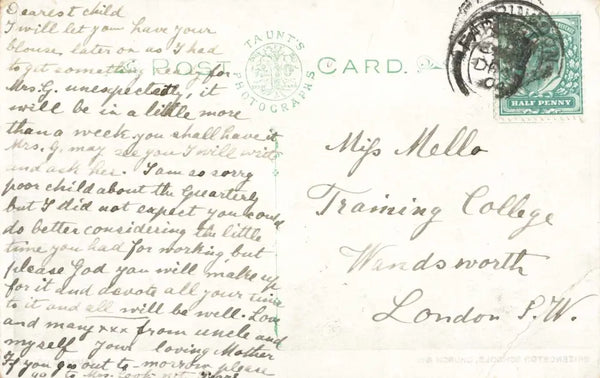 Dearest child
I will let you have your
blouse later on as I had
to get something ready for
Mrs. G. unexpectedly, it
will be in a little more
than a week you shall have it
Mrs. G. may see you I will write
and ask her. I am so sorry
poor child about the Quarterly
but I did not expect you could
do better considering the little
time you had for working but
please God you will make up
for it and devote all your time
to it and all will be well. Love
and many xxx from uncle and
myself your loving Mother
If you go out to-morrow please
go to Mrs.
POST CARD.
TAUNT'S
PHOTOGRAPHS
HALF PENNY
Miss Mello
Training College
Wandsworth
London S.W.